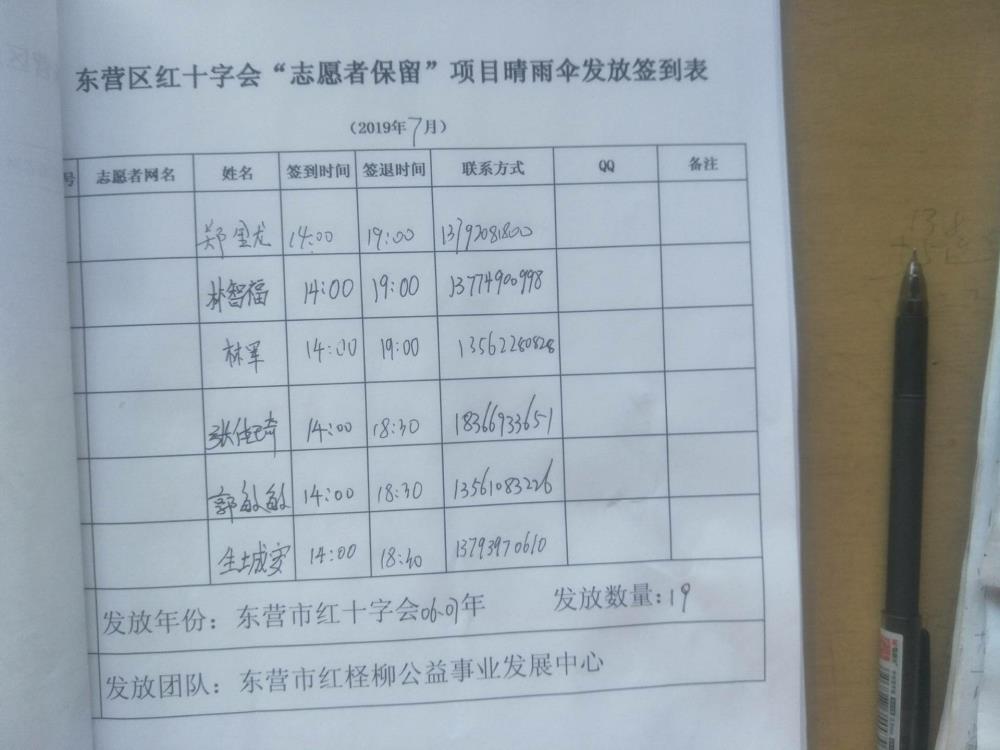 东营区红十字会“志愿者保留”项目晴雨伞发放签到表
（2019年7月）
号 志愿者网名 姓名 签到时间 签退时间 联系方式 QQ 备注
郑 龙 14:00 19:00 13792081800
林智福 14:00 19:00 13774900998
林军 14:00 19:00 13562280828
张 奇 14:00 18:30 18366933651
郭敏敏 14:00 18:30 13561083226
14:00 18:30 13793970610
发放年份：东营市红十字会06-07年 发放数量：19
发放团队：东营市红柽柳公益事业发展中心